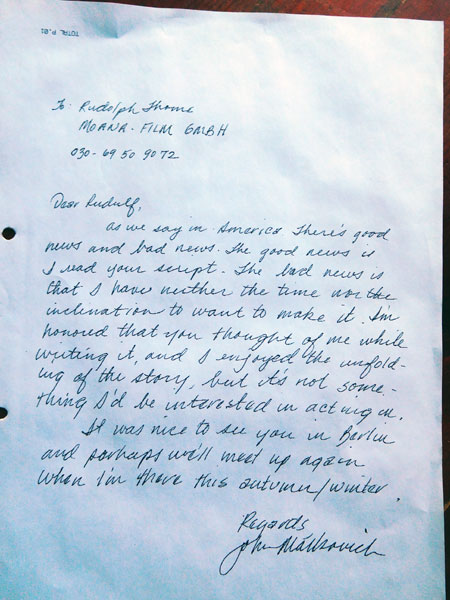 TOTAL P.01
To Rudolph Thome
MOANA-FILM GMBH
030-69 50 9072
Dear Rudolf,
As we say in America there's good
news and bad news. The good news is
I read your script. The bad news is
that I have neither the time nor the
inclination to want to make it. I'm
honored that you thought of me while
writing it, and I enjoyed the unfold-
ing of the story, but it's not some-
thing I'd be interested in acting in.
It was nice to see you in Berlin
and perhaps we'll meet up again
when I'm there this autumn/winter.
Regards
John Malkovich